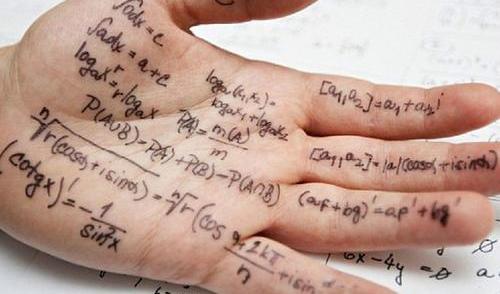 ∫0dx=c
∫adx=a+c
logaˣʳ=rlogax
loga(x₁x₂)=
logax₁+logax₂
P(A)=m(A)/m
P(A∪B)=P(A)+P(B)-P(A∩B)
ⁿ√r(cosα+isinα)=ⁿ√r(cos α+2kπ/n+isin
(cotgx)'=-1/sin²x
[a₁,a₂]=a₁+a₂i
[a₁,a₂]=|a|(cosα+isinα)
(af+bg)'=af'+bg'
6x-4y=0